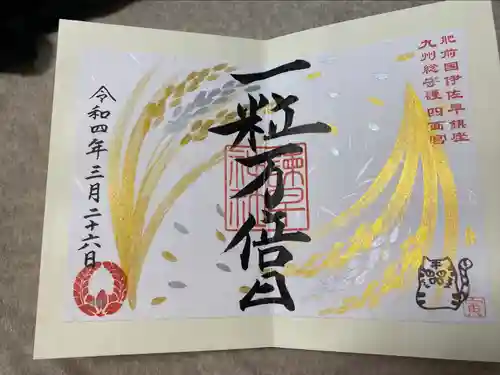 肥前国伊佐早鎮座
九州総守護 四面宮
一粒万倍日
諫早神社
令和四年三月二十六日
寅